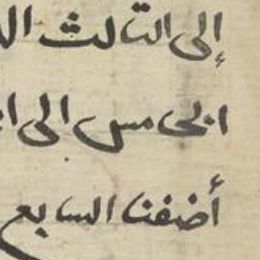 إلى الثالث
الخامس الى
أضفنا السابع